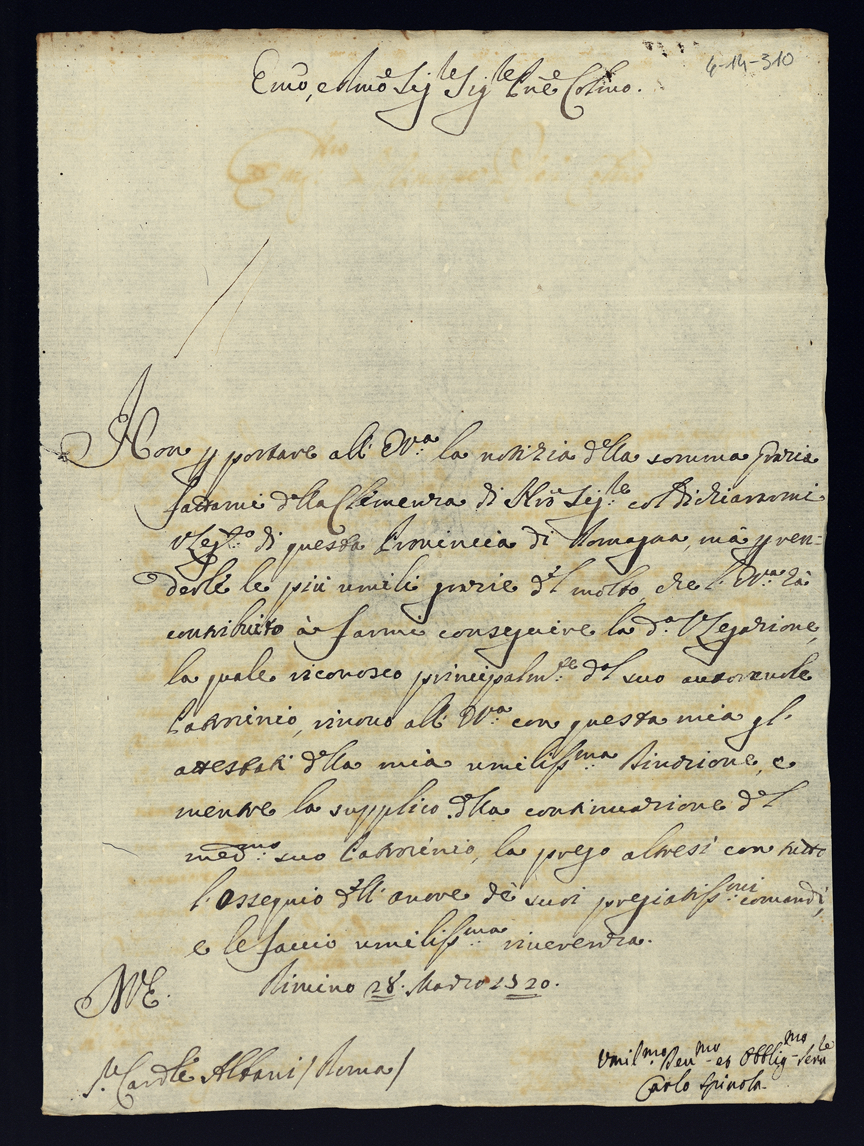 4-14-310
Emo, e Rmo Sig.re Sig.re Pne Colmo.
Non p portare all' E.Va la notizia della somma grazia
fattami della Clemenza di Nro Sig.re col dichiararmi
VLeg.to di questa Provincia di Romagna, mà p ren-
derle le più umili grazie del molto che l'E.Va hà
contribuito à farmi conseguire la d.a VLegazione,
la quale riconosco principalm.te dal suo autorevole
Patrocinio, rinovo all' E.Va con questa mia gl'
attestati della mia umiliss.ma divozione, e
mentre la supplico della continuazione del
med.mo suo Patrocinio, la prego altresì con tutto
l'ossequio dell' onore de suoi pregiatiss.mi comandi,
e le faccio umiliss.ma riverenza.
Rimino 28. Marzo 1720.
VE.
S.re Cardle Albani / Roma /
Umil.mo Dev.mo et Obblig.mo Serv.re
Carlo Spinola